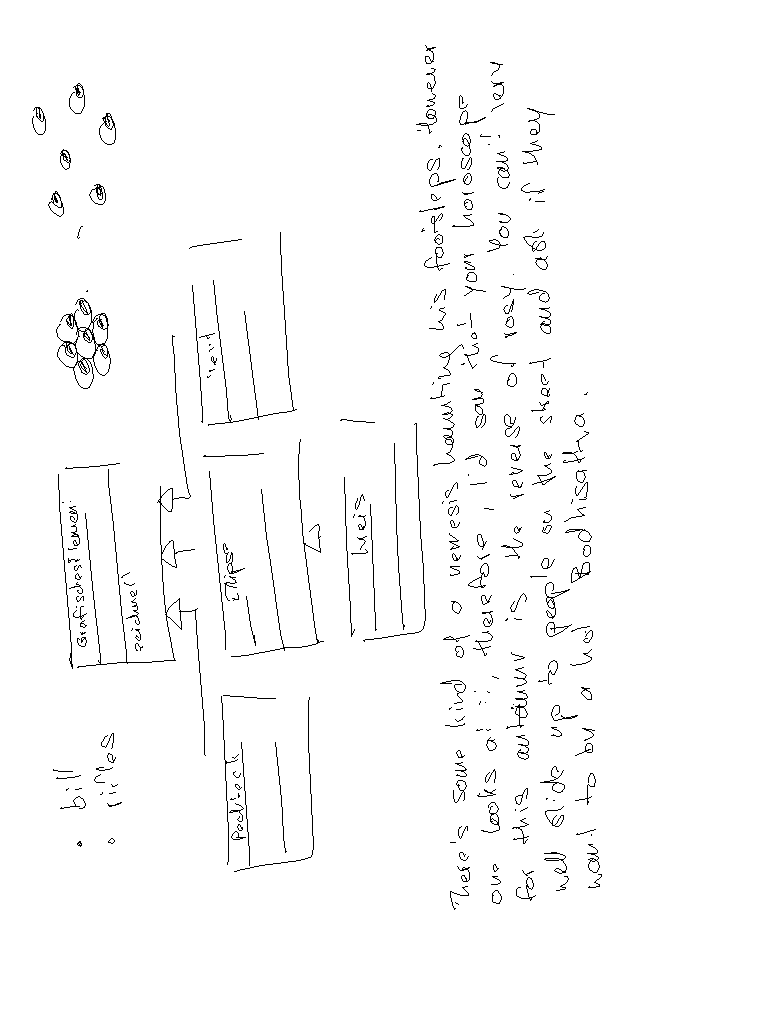 • bill
• rifles
zeichnen()
Ellipse
Text
There's some kind of a nemesis haunting his footsteps. However
one looks at it, therefore, I'd say that your horoscope
for this autumn is the reverse of rosy. You can't very
well slide up to people on the street and ask if they
want to buy a hot Bodhisattva.